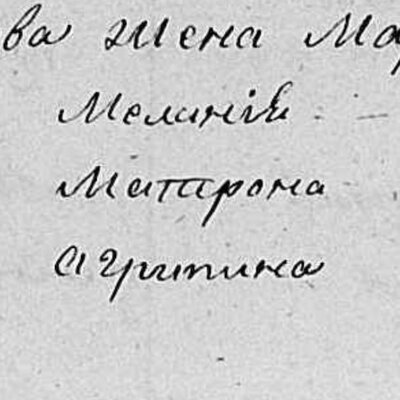 ва жена Мар
Меланія
Матрона
Агрипина